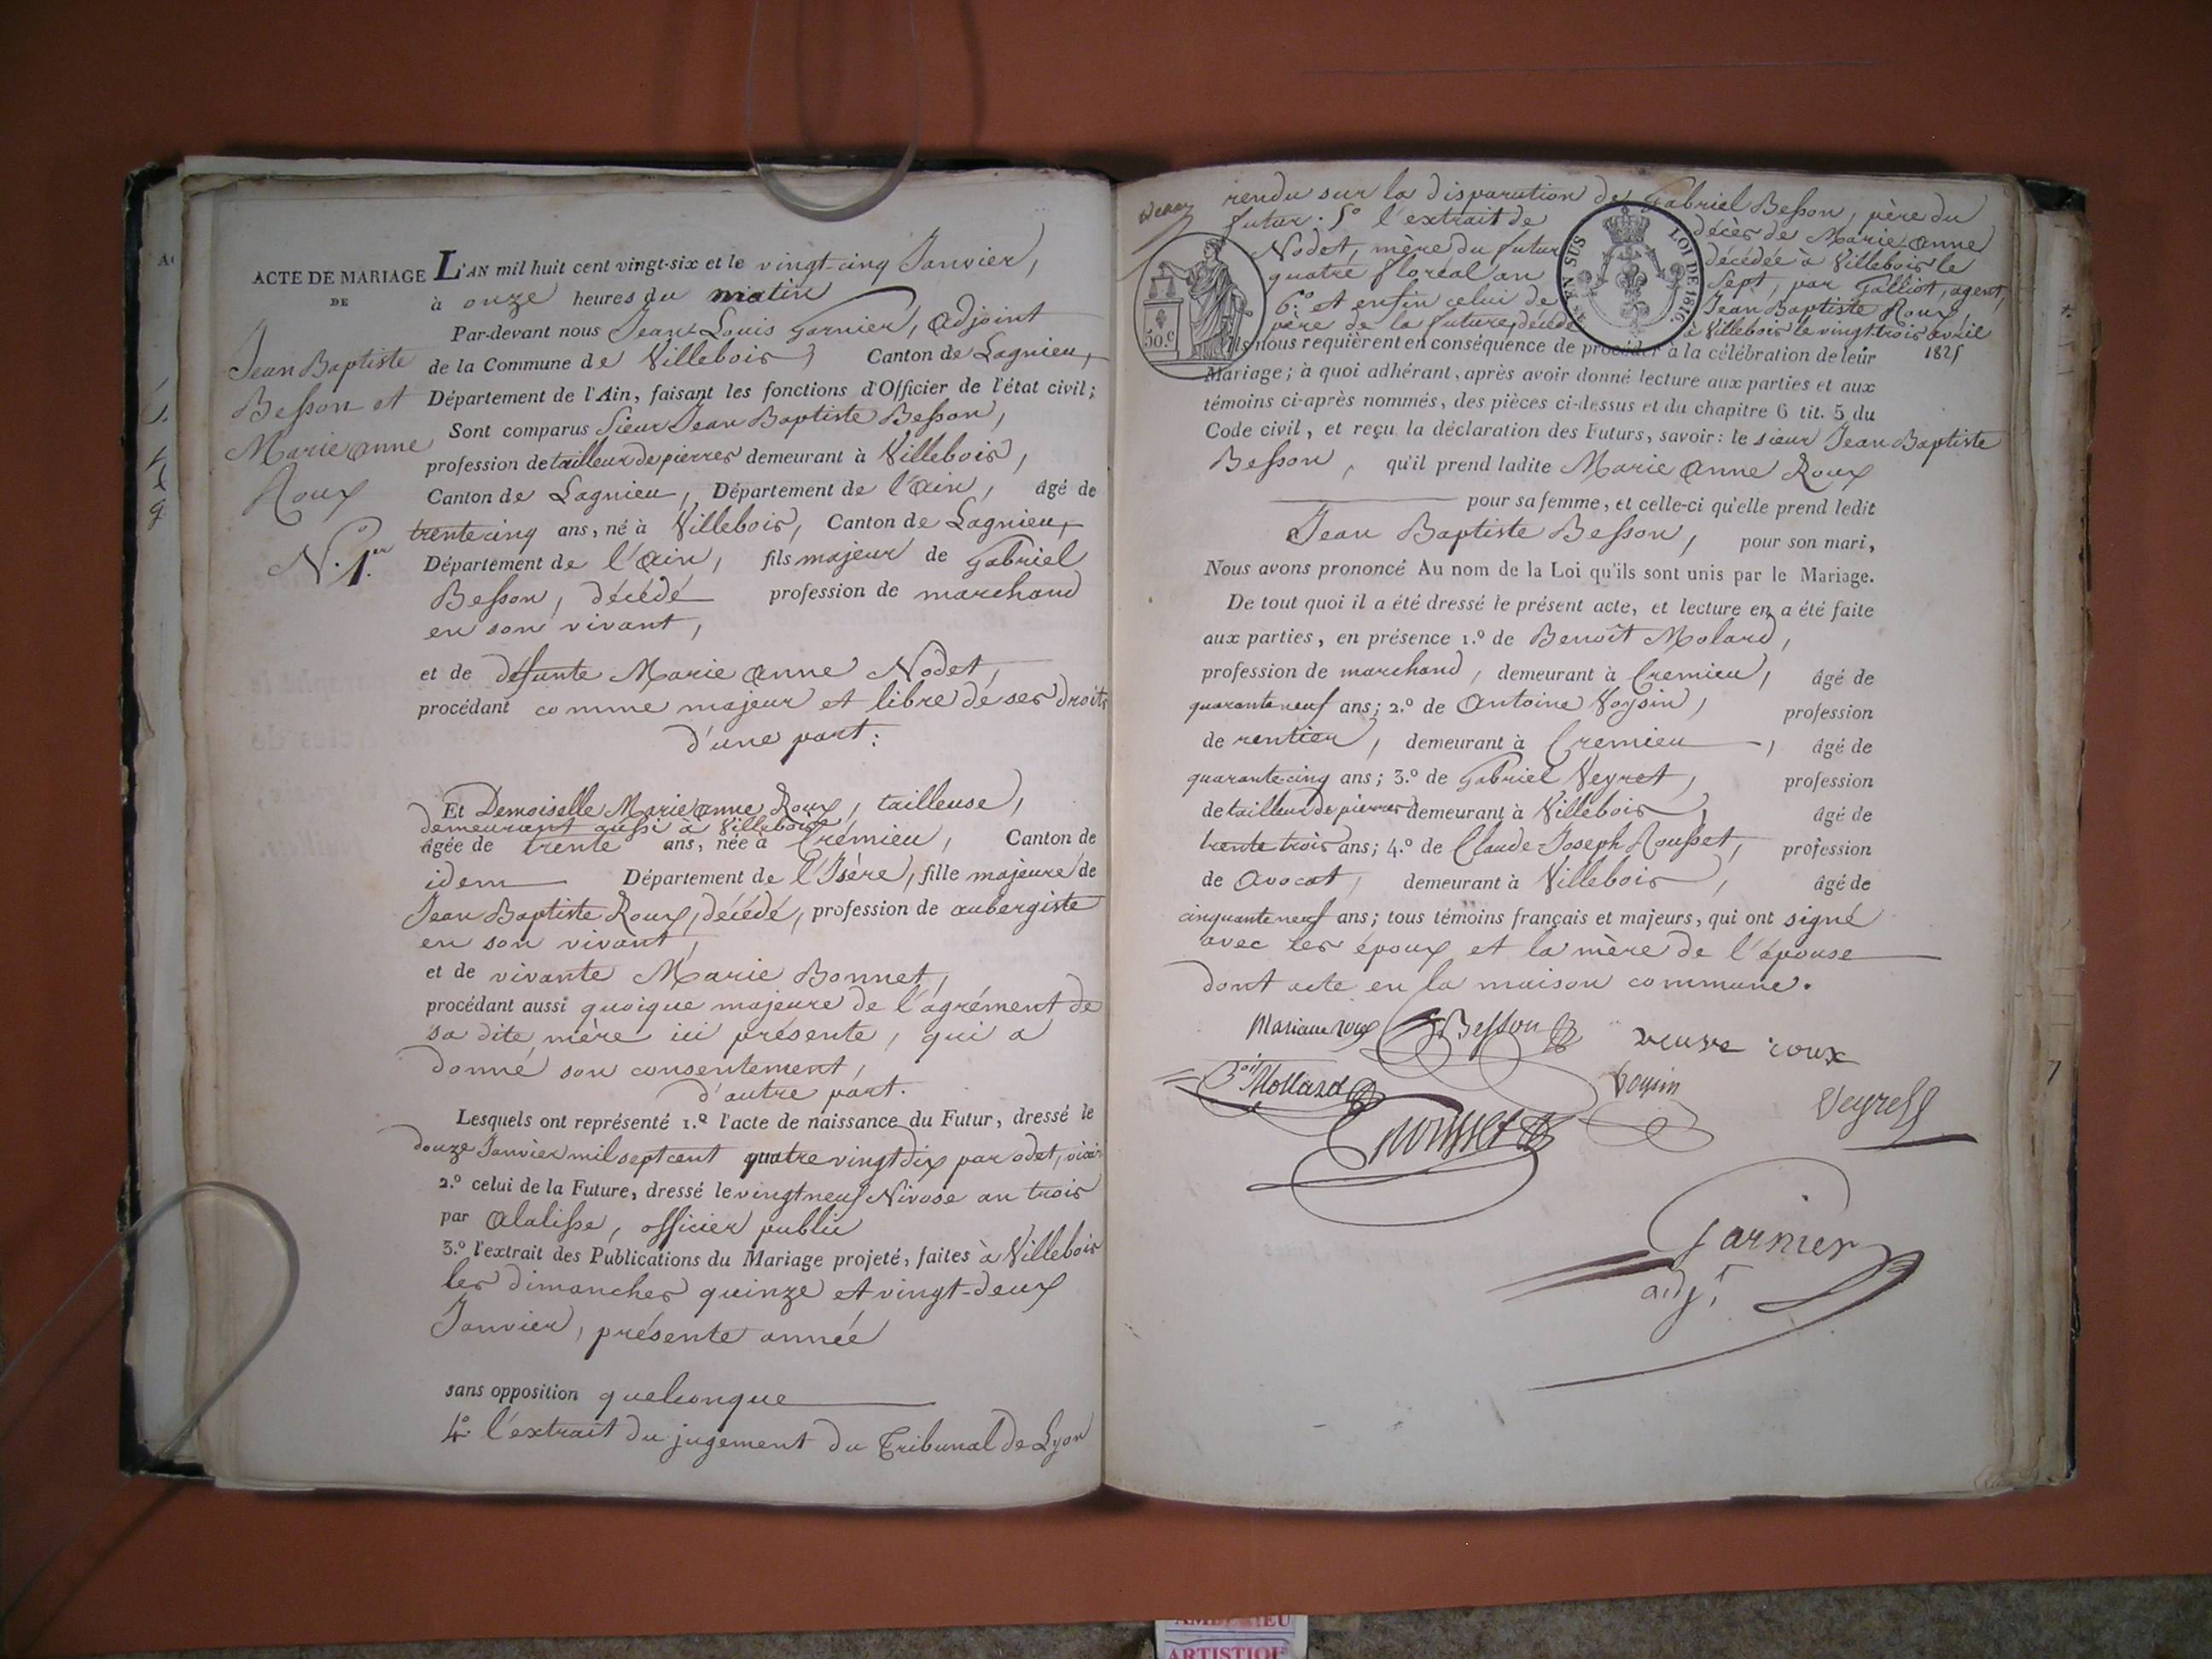 ACTE DE MARIAGE
DE
Jean Baptiste
Besson et
Marie anne
Roux
N.º 1.er
L'AN mil huit cent vingt-six et le vingt-cinq Janvier,
à onze heures du matin
Par-devant nous Jean-Louis Garnier, adjoint
de la Commune de Villebois, Canton de Lagnieu,
Département de l'Ain, faisant les fonctions d'Officier de l'état civil;
Sont comparus Sieur Jean Baptiste Besson,
profession de tailleur de pierres demeurant à Villebois,
Canton de Lagnieu, Département de l'ain, âgé de
trente cinq ans, né à Villebois, Canton de Lagnieu,
Département de l'ain, fils majeur de Gabriel
Besson, décédé profession de marchand
en son vivant,
et de défunte Marie anne Nodet,
procédant comme majeur et libre de ses droits
d'une part:
Et Demoiselle Marie anne Roux, tailleuse,
demeurant aussi à Villebois,
âgée de trente ans, née à Crémieu, Canton de
idem Département de l'Isère, fille majeure de
Jean Baptiste Roux, décédé, profession de aubergiste
en son vivant,
et de vivante Marie Bonnet,
procédant aussi quoique majeure de l'agrément de
sa dite mère ici présente, qui a
donné son consentement,
d'autre part.
Lesquels ont représenté 1.º l'acte de naissance du Futur, dressé le
douze Janvier mil sept cent quatre vingt dix par odet, vicaire
2.º celui de la Future, dressé le vingt neuf Nivose an trois
par alalisse, officier public
3.º l'extrait des Publications du Mariage projeté, faites à Villebois
les dimanches quinze et vingt-deux
Janvier, présente année
sans opposition quelconque
4º l'extrait du jugement du Tribunal de Lyon
rendu sur la disparution de Gabriel Besson, père du
futur. 5º l'extrait de décès de Marie anne
Nodet, mère du futur décédée à Villebois le
quatre floréal an sept, par Galliot, agent,
6.º et enfin celui de Jean Baptiste Roux,
père de la future, décédé à Villebois le vingt-trois avril
1825
50.c
EN SUS
LOI DE 1816.
Ils nous requièrent en conséquence de procéder à la célébration de leur
Mariage; à quoi adhérant, après avoir donné lecture aux parties et aux
témoins ci-après nommés, des pièces ci-dessus et du chapitre 6 tit. 5 du
Code civil, et reçu la déclaration des Futurs, savoir: le sieur Jean Baptiste
Besson, qu'il prend ladite Marie anne Roux
pour sa femme, et celle-ci qu'elle prend ledit
Jean Baptiste Besson, pour son mari,
Nous avons prononcé Au nom de la Loi qu'ils sont unis par le Mariage.
De tout quoi il a été dressé le présent acte, et lecture en a été faite
aux parties, en présence 1.º de Benoît Molard,
profession de marchand, demeurant à Cremieu, âgé de
quarante neuf ans; 2.º de Antoine Voysin, profession
de rentier, demeurant à Cremieu, âgé de
quarante cinq ans; 3.º de Gabriel Veyret, profession
de tailleur de pierres demeurant à Villebois, âgé de
trente trois ans; 4.º de Claude-Joseph Rousset, profession
de avocat, demeurant à Villebois, âgé de
cinquante neuf ans; tous témoins français et majeurs, qui ont signé
avec les époux et la mère de l'épouse
dont acte en la maison commune.
Mariane roux Besson veuve roux
Mollard voysin Veyret
Rousset
Garnier
adj.t
ARTISTIQUE